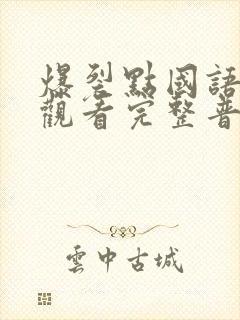 爆裂點國語
觀看完整普
雲中古城